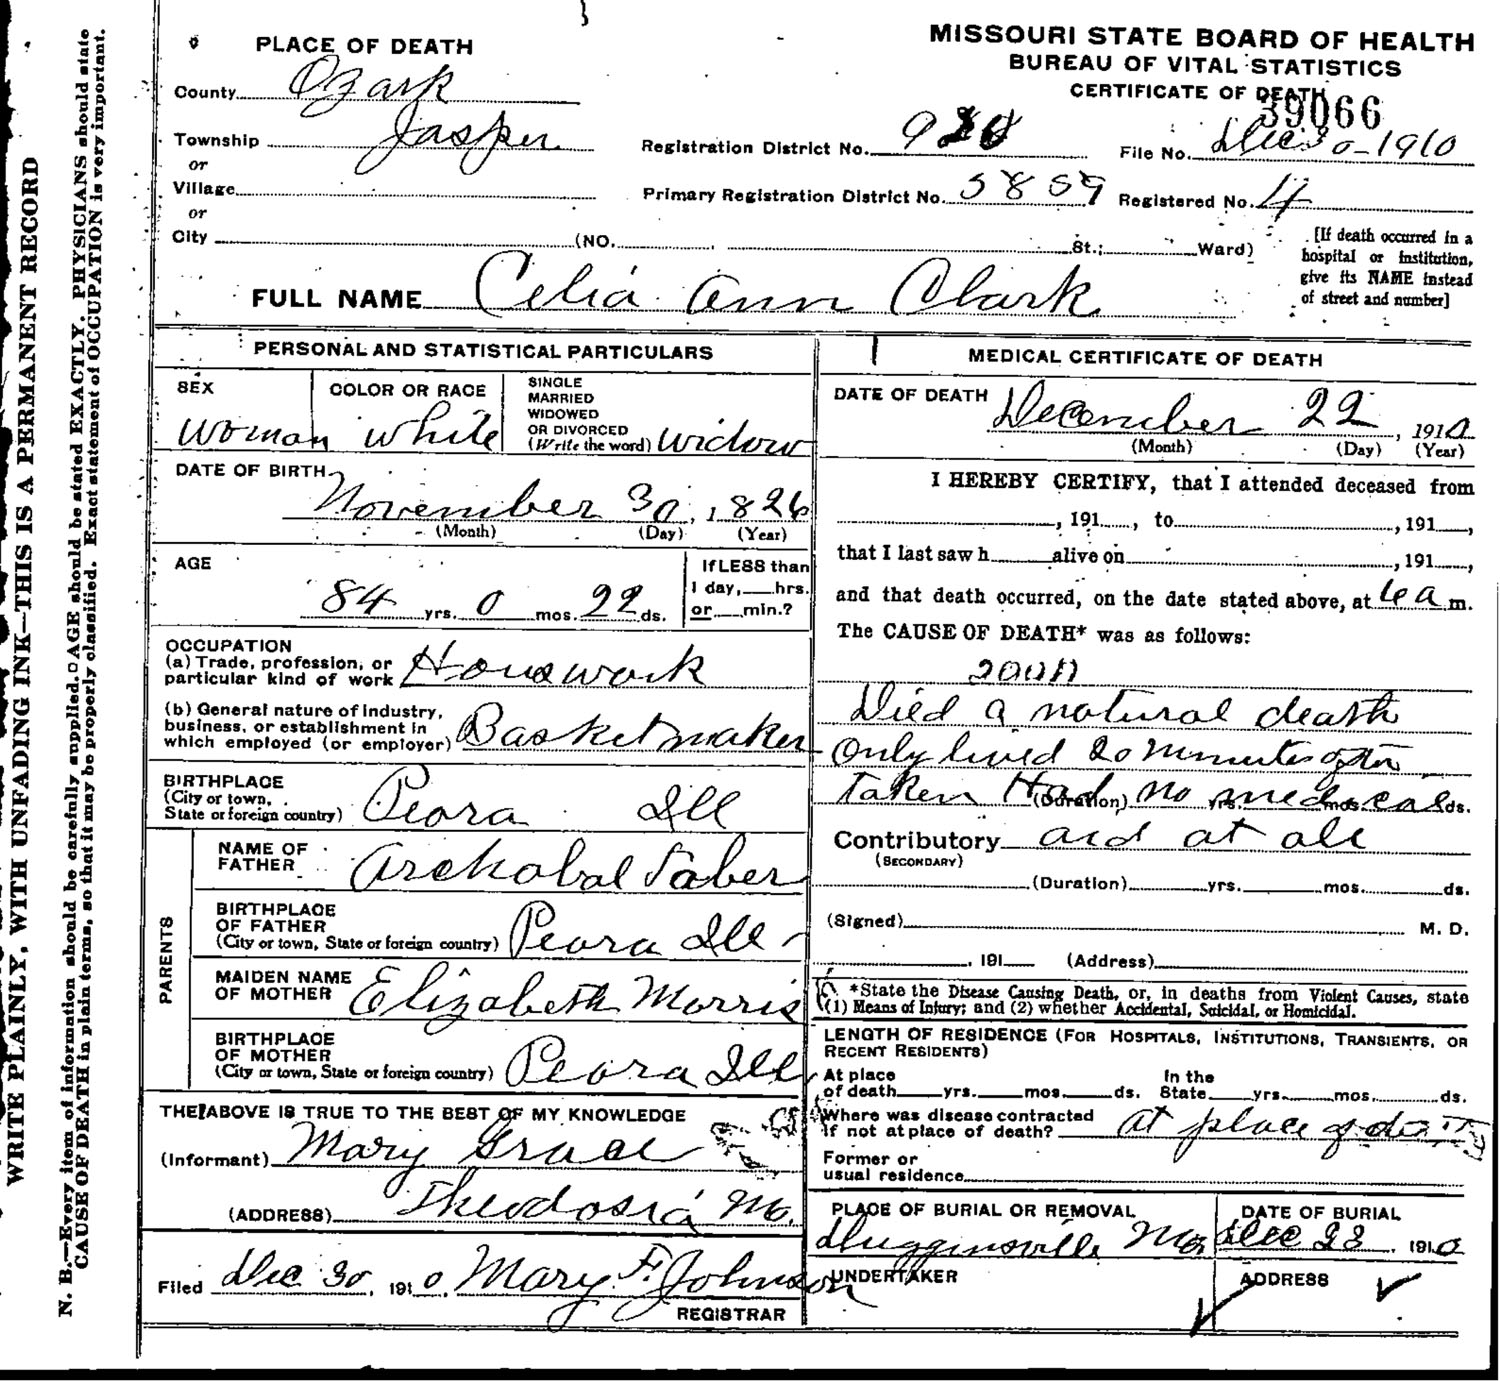 WRITE PLAINLY, WITH UNFADING INK—THIS IS A PERMANENT RECORD
N. B.—Every item of information should be carefully supplied. AGE should be stated EXACTLY. PHYSICIANS should state
CAUSE OF DEATH in plain terms, so that it may be properly classified. Exact statement of OCCUPATION is very important.
MISSOURI STATE BOARD OF HEALTH
BUREAU OF VITAL STATISTICS
CERTIFICATE OF DEATH
39066
PLACE OF DEATH
County Ozark
Township Jasper
or
Village
or
City (NO. St.; Ward)
Registration District No.
File No. Dec 30-1910
Primary Registration District No. 5859
Registered No. 4
[If death occurred in a
hospital or institution,
give its NAME instead
of street and number]
FULL NAME Celia Ann Clark
PERSONAL AND STATISTICAL PARTICULARS
SEX
woman
COLOR OR RACE
white
SINGLE
MARRIED
WIDOWED
OR DIVORCED
(Write the word) Widow
DATE OF BIRTH
November 30, 1826
(Month) (Day) (Year)
AGE
84 yrs. 0 mos. 22 ds.
If LESS than
1 day, hrs.
or min.?
OCCUPATION
(a) Trade, profession, or
particular kind of work Houswork
(b) General nature of industry,
business, or establishment in
which employed (or employer) Basket maker
BIRTHPLACE
(City or town,
State or foreign country) Peora Ill
PARENTS
NAME OF
FATHER Archabal Taber
BIRTHPLACE
OF FATHER
(City or town, State or foreign country) Peora Ill
MAIDEN NAME
OF MOTHER Elizabeth Morris
BIRTHPLACE
OF MOTHER
(City or town, State or foreign country) Peora Ill
THE ABOVE IS TRUE TO THE BEST OF MY KNOWLEDGE
(Informant) Mary Grace
(ADDRESS) Theodosia Mo.
Filed Dec 30, 1910, Mary F. Johnson
REGISTRAR
MEDICAL CERTIFICATE OF DEATH
DATE OF DEATH December 22, 1910
(Month) (Day) (Year)
I HEREBY CERTIFY, that I attended deceased from
, 191 , to , 191 ,
that I last saw h alive on , 191 ,
and that death occurred, on the date stated above, at 6 a m.
The CAUSE OF DEATH* was as follows:
Died a natural death
Only lived 20 minutes after
taken Had no medical
(Duration) yrs. mos. ds.
Contributory aid at all
(SECONDARY)
(Duration) yrs. mos. ds.
(Signed) M. D.
, 191 (Address)
*State the Disease Causing Death, or, in deaths from Violent Causes, state
(1) Means of Injury; and (2) whether Accidental, Suicidal, or Homicidal.
LENGTH OF RESIDENCE (FOR HOSPITALS, INSTITUTIONS, TRANSIENTS, OR
RECENT RESIDENTS)
At place In the
of death yrs. mos. ds. State yrs. mos. ds.
Where was disease contracted
if not at place of death? at place of
Former or
usual residence
PLACE OF BURIAL OR REMOVAL
Dugginsville Mo
DATE OF BURIAL
Dec 23, 1910
UNDERTAKER
ADDRESS